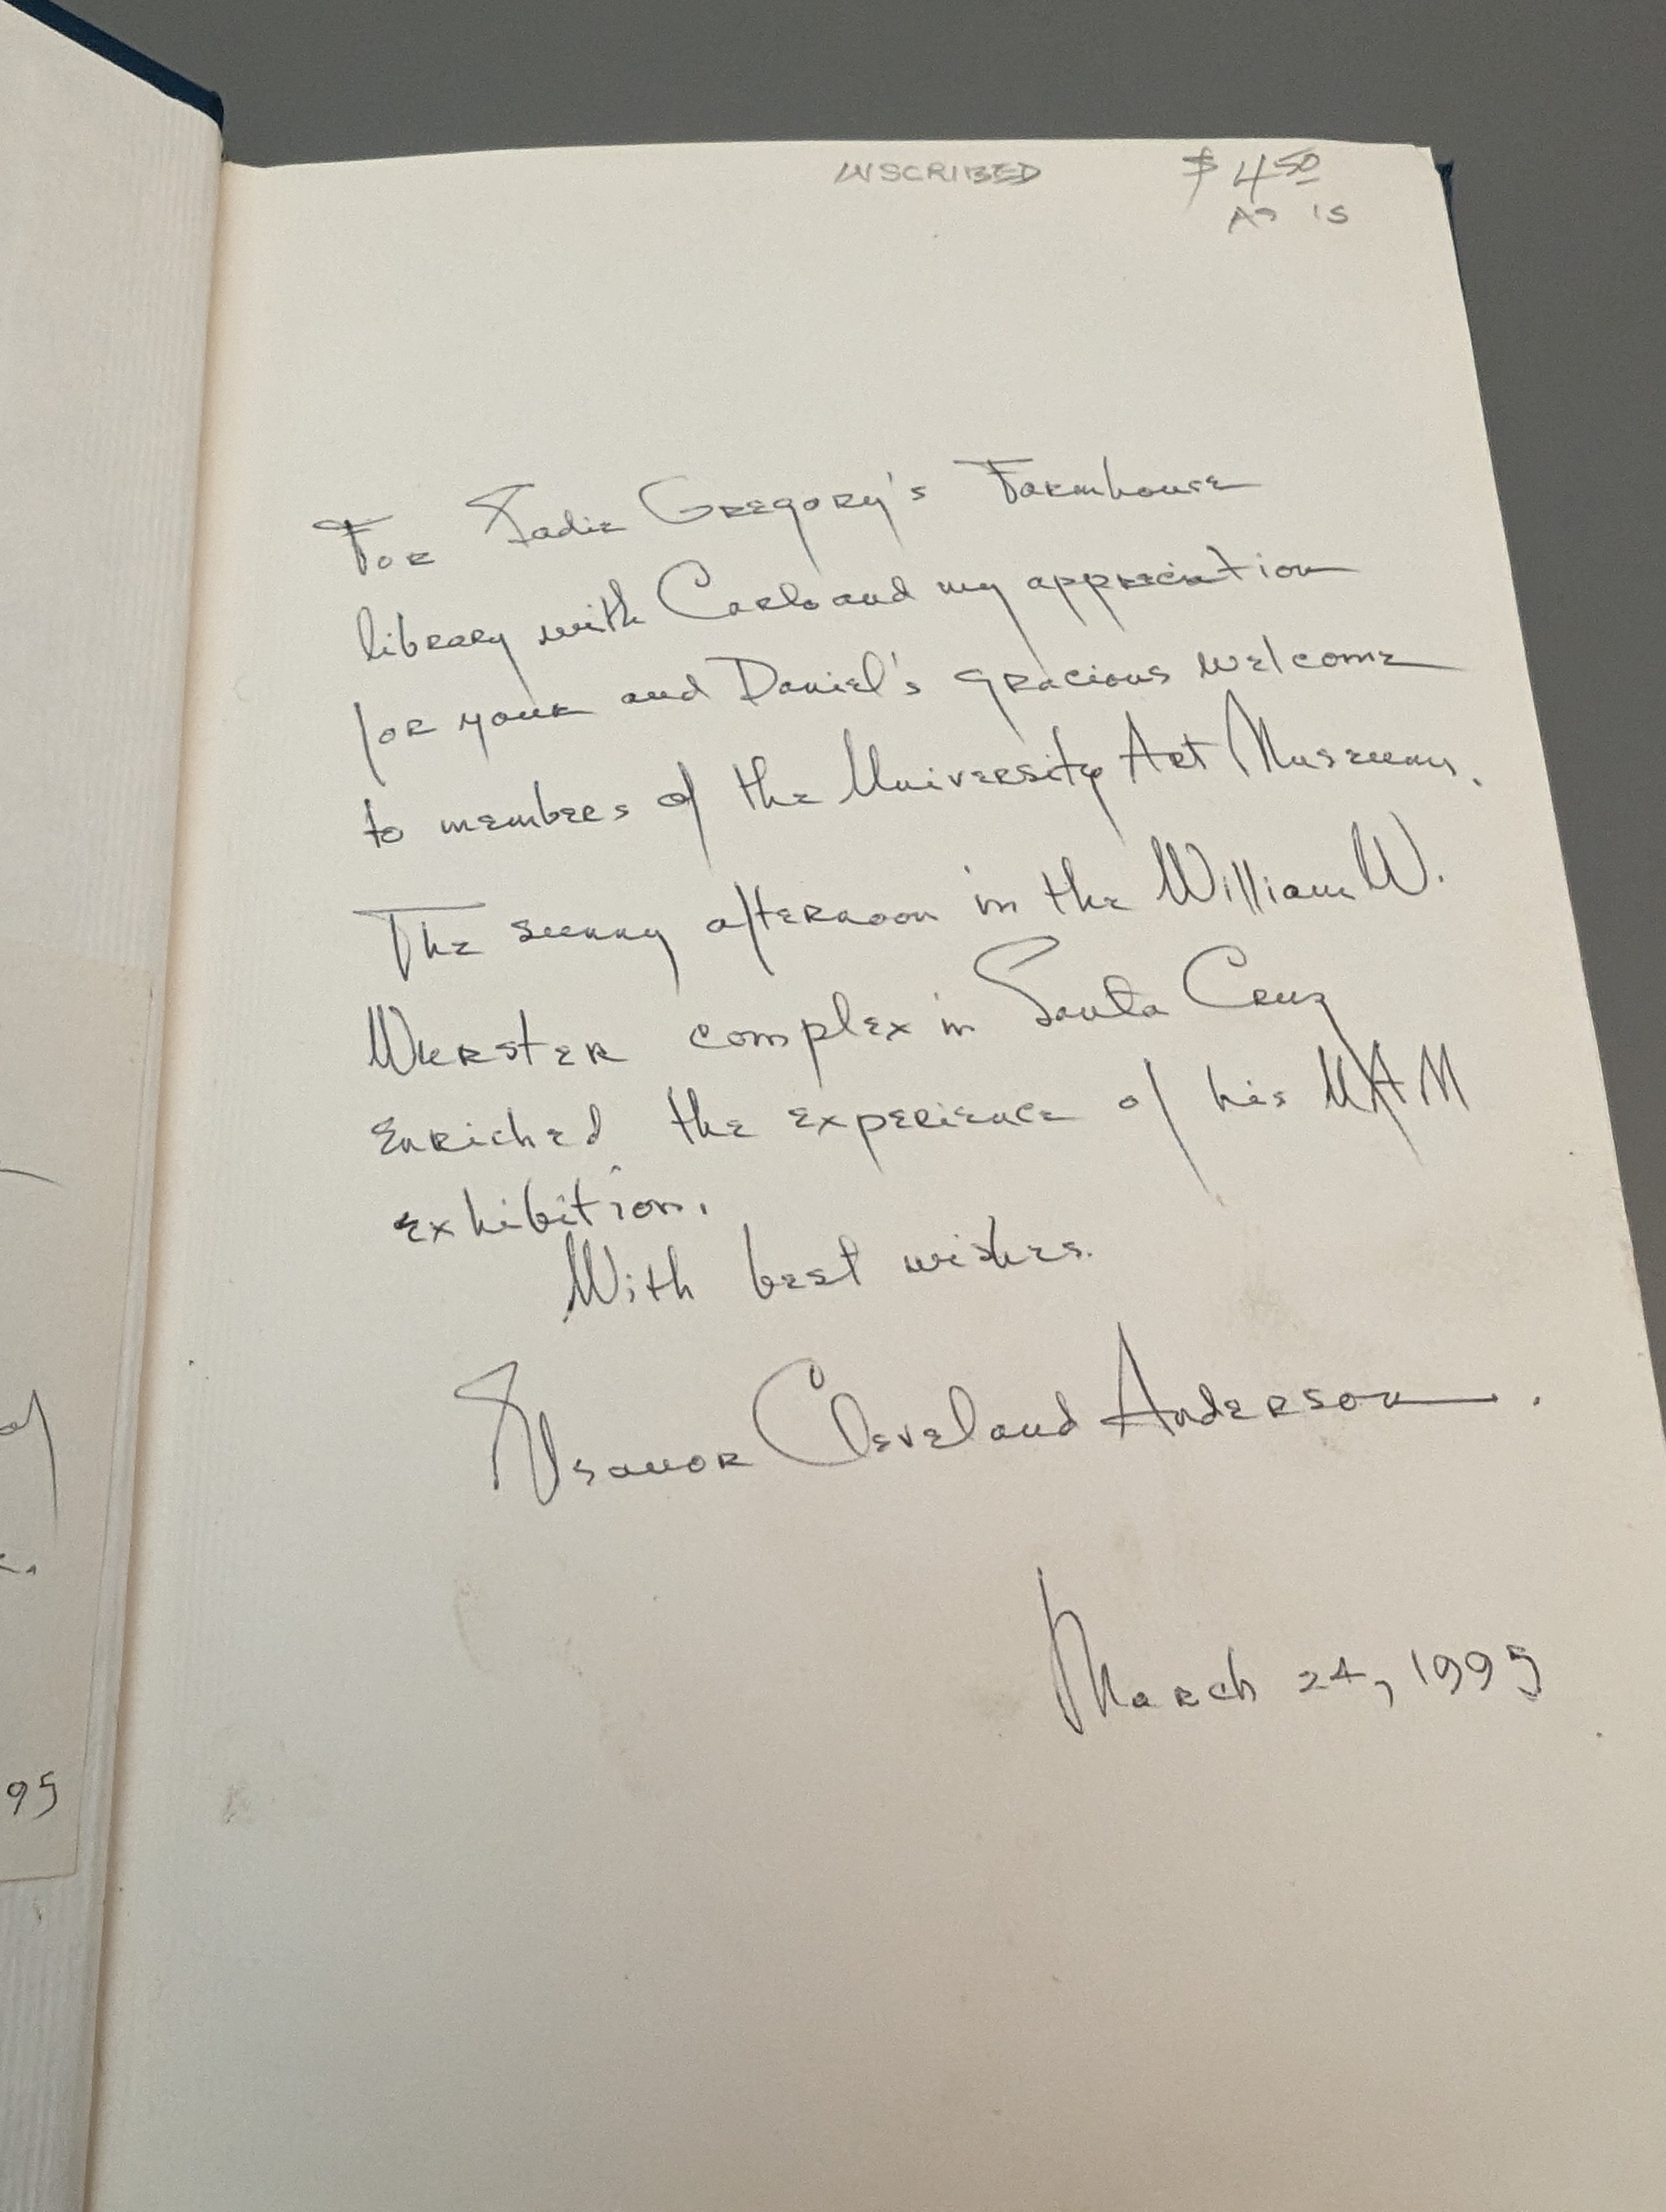 INSCRIBED $4.50
AS IS
For Sadie Gregory's Farmhouse
library with Carl and my appreciation
for your and Daniel's gracious welcome
to members of the University Art Museum.
The sunny afternoon in the William W.
Wurster complex in Santa Cruz
enriched the experience of his UAM
exhibition.
With best wishes.
Eleanor Cleveland Anderson.
March 24, 1995
of
95